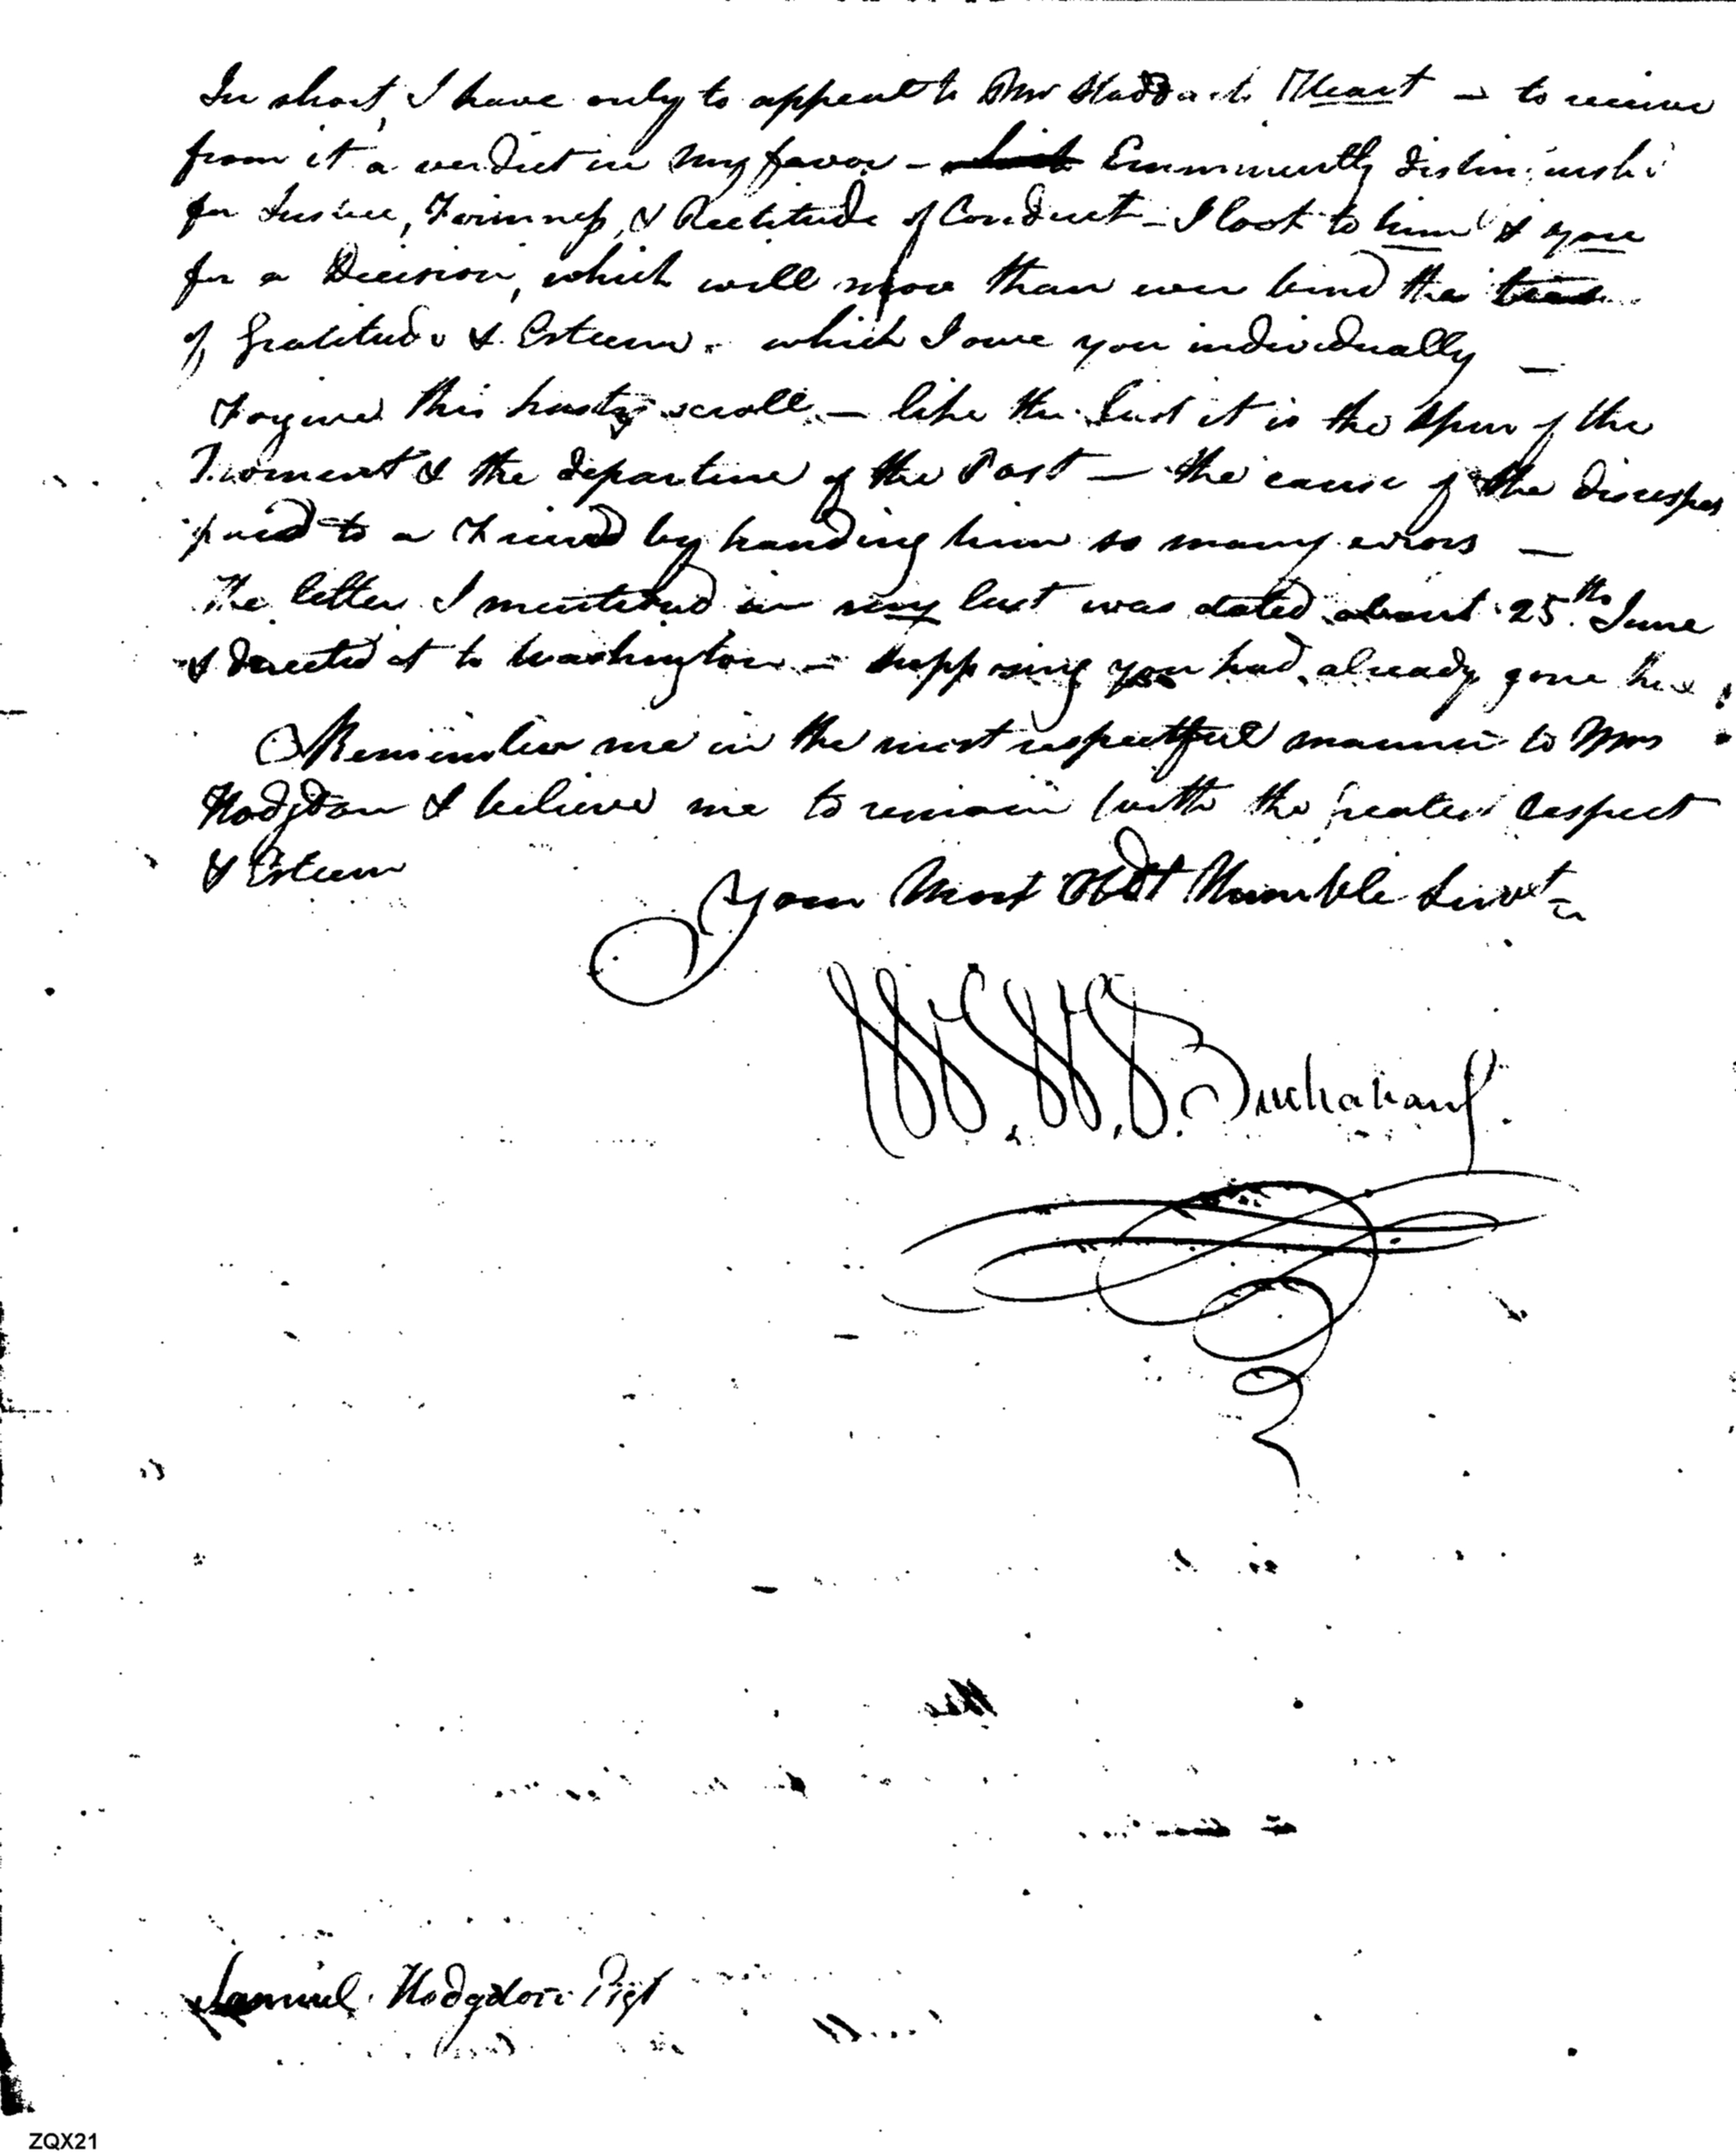 In short, I have only to appeal to Mr Stoddarts Heart – to receive
from it a verdict in my favor – Emminently distinguish
for Justice, Firmness, & Rectitude of Conduct – I look to him & you
for a Decision, which will more than ever bind the ties
of Gratitude & Esteem – which I owe you individually –
Forgive this hasty scroll – like the last it is the spur of the
Moment & the departure of the Post – the cause of the disrespect
paid to a Friend by handing him so many errors –
The letter I mentioned in my last was dated about 25th June
& directed it to Washington – supposing you had already gone
Remember me in the most respectful manner to Mrs
Hodgdon & believe me to remain with the Greatest Respect
& Esteem
Your Most Obdt Humble Servt
W. W. Buchanan
Samuel Hodgdon
ZQX21